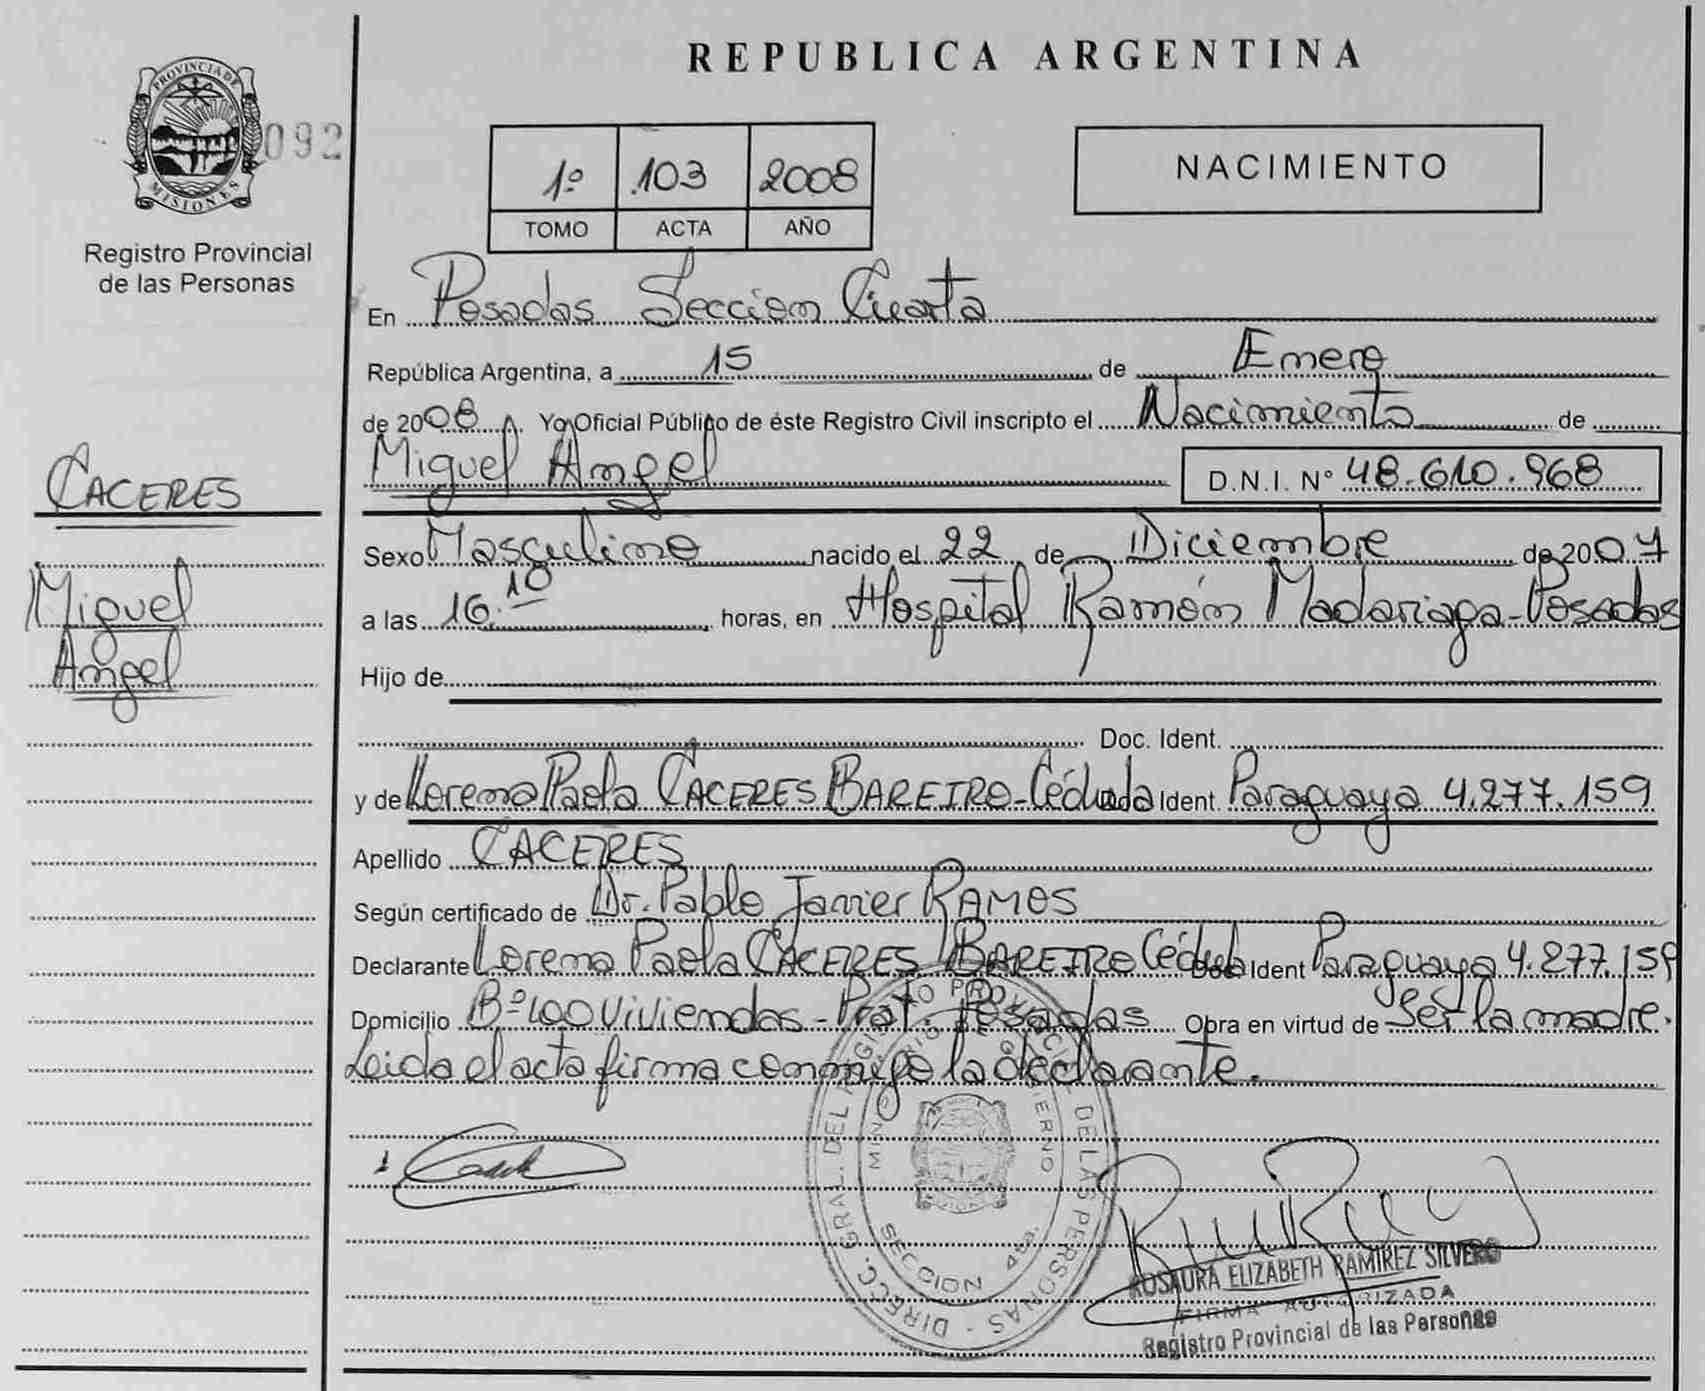 REPUBLICA ARGENTINA
PROVINCIA DE
MISIONES
092
Registro Provincial
de las Personas
1º 103 2008
TOMO ACTA AÑO
NACIMIENTO
En Posadas Seccion Cuarta
República Argentina, a 15 de Enero
de 2008. Yo Oficial Público de éste Registro Civil inscripto el Nacimiento de
Miguel Angel D.N.I. Nº 48.610.968
CACERES
Miguel
Angel
Sexo Masculino nacido el 22 de Diciembre de 2007
a las 16.10 horas, en Hospital Ramón Madariaga-Posadas
Hijo de
Doc. Ident.
y de Lorena Paola CACERES BAREIRO-Cédula Ident. Paraguaya 4.277.159
Apellido CACERES
Según certificado de Dr. Pablo Javier RAMOS
Declarante Lorena Paola CACERES BAREIRO Cédula Ident Paraguaya 4.277.159
Domicilio Bº 400 Viviendas - Prof. Posadas Obra en virtud de Ser la madre.
Leida el acta firma conmigo la declarante.
DIRECC. GRAL. DEL REGISTRO PROVINCIAL DE LAS PERSONAS
MINISTERIO DE GOBIERNO
SECCION 4ta.
ROSAURA ELIZABETH RAMIREZ SILVERO
FIRMA AUTORIZADA
Registro Provincial de las Personas